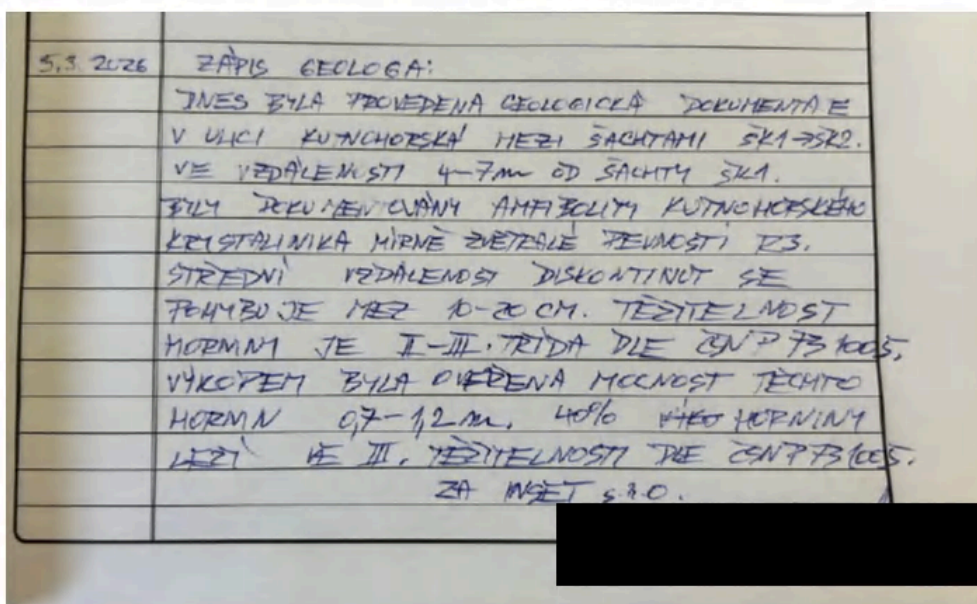 5.3.2026 ZÁPIS GEOLOGA:
DNES BYLA PROVEDENA GEOLOGICKÁ DOKUMENTA E
V ULICI KUTNOHORSKÁ MEZI ŠACHTAMI ŠK1→ŠK2.
VE VZDÁLENOSTI 4-7m OD ŠACHTY ŠK1.
BYLY DOKUMENTOVÁNY AMFIBOLITY KUTNOHORSKÉHO
KRYSTALINIKA MÍRNĚ ZVĚTRALÉ PEVNOSTI R3.
STŘEDNÍ VZDÁLENOST DISKONTINUT SE
POHYBUJE MEZ 10-20 CM. TĚŽITELNOST
HORNINY JE II-III. TŘÍDA DLE ČSN P 73 1005.
VÝKOPEM BYLA OVĚŘENA MOCNOST TĚCHTO
HORNIN 0,7-1,2 m. 40% HORNINY
LEŽÍ VE III. TĚŽITELNOSTI DLE ČSN P 73 1005.
ZA INSET s.r.o.